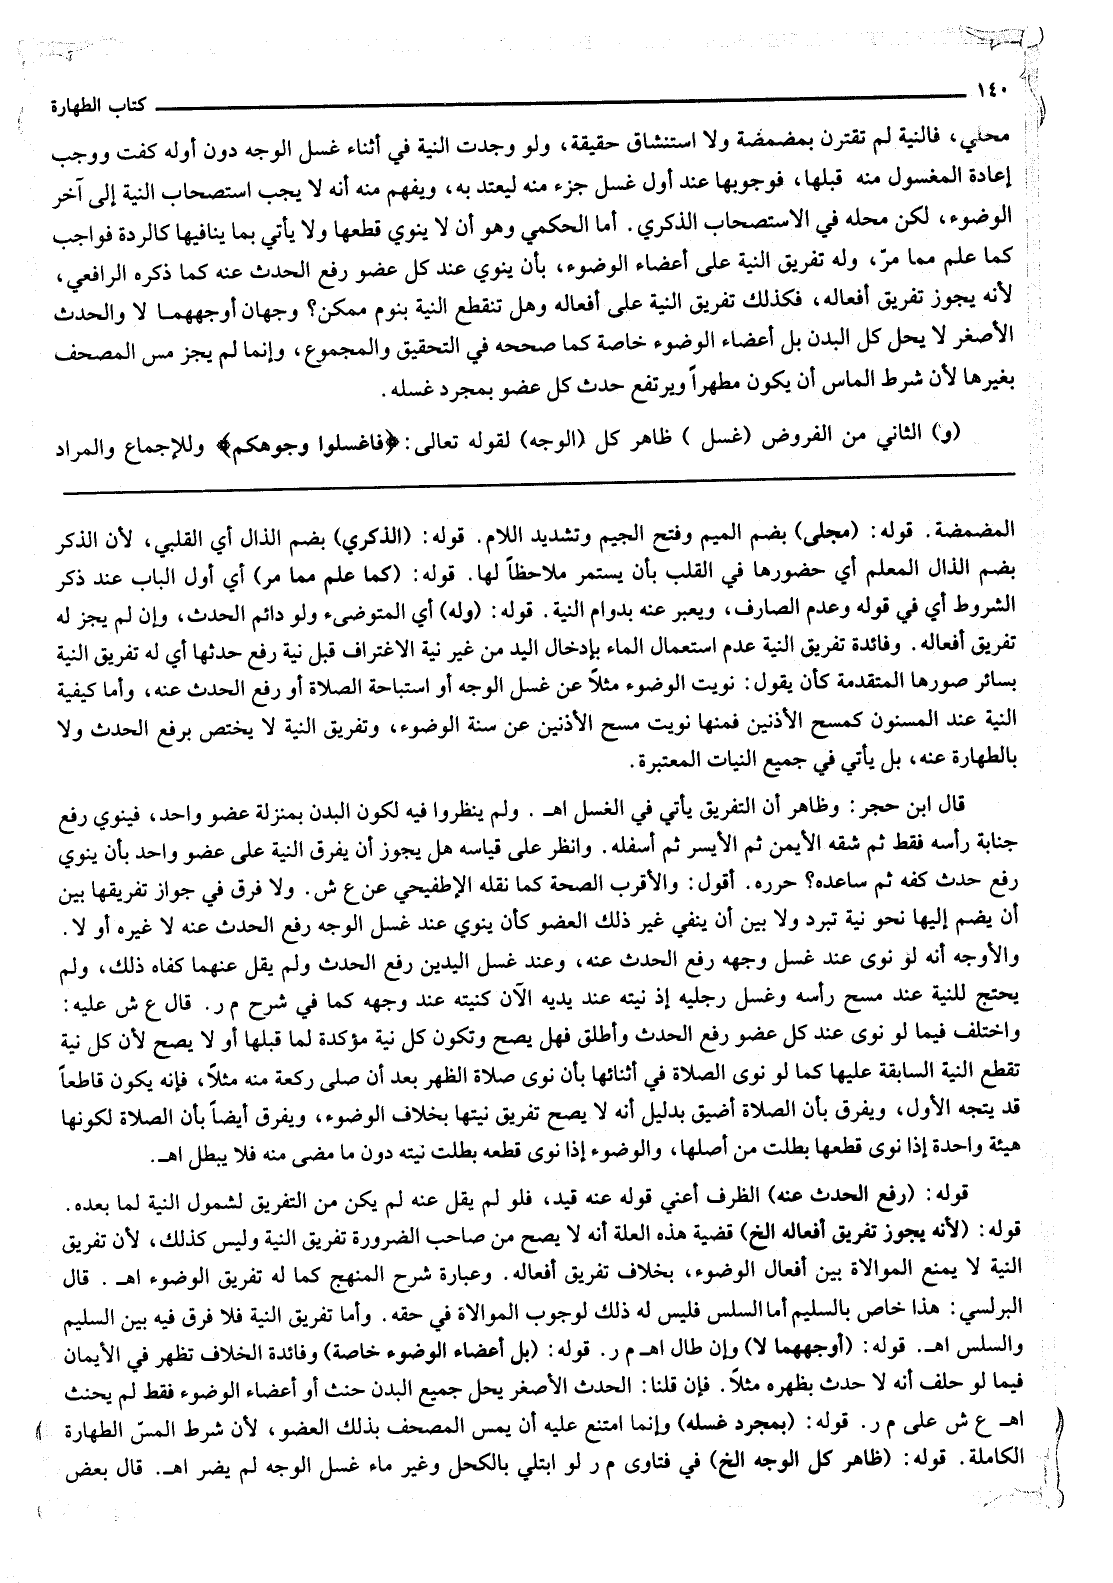 ١٤٠ ــــــــــــــــــــ كتاب الطهارة
محلي، فالنية لم تقترن بمضمضة ولا استنشاق حقيقة، ولو وجدت النية في أثناء غسل الوجه دون أوله كفت ووجب
إعادة المغسول منه قبلها، فوجوبها عند أول غسل جزء منه ليعتد به، ويفهم منه أنه لا يجب استصحاب النية إلى آخر
الوضوء، لكن محله في الاستصحاب الذكري. أما الحكمي وهو أن لا ينوي قطعها ولا يأتي بما ينافيها كالردة فواجب
كما علم مما مرّ، وله تفريق النية على أعضاء الوضوء، بأن ينوي عند كل عضو رفع الحدث عنه كما ذكره الرافعي،
لأنه يجوز تفريق أفعاله، فكذلك تفريق النية على أفعاله وهل تنقطع النية بنوم ممكن؟ وجهان أوجههما لا والحدث
الأصغر لا يحل كل البدن بل أعضاء الوضوء خاصة كما صححه في التحقيق والمجموع، وإنما لم يجز مس المصحف
بغيرها لأن شرط الماس أن يكون مطهراً ويرتفع حدث كل عضو بمجرد غسله.
(و) الثاني من الفروض (غسل ) ظاهر كل (الوجه) لقوله تعالى: ﴿فاغسلوا وجوهكم﴾ وللإجماع والمراد
المضمضة. قوله: (مجلى) بضم الميم وفتح الجيم وتشديد اللام. قوله: (الذكري) بضم الذال أي القلبي، لأن الذكر
بضم الذال المعلم أي حضورها في القلب بأن يستمر ملاحظاً لها. قوله: (كما علم مما مر) أي أول الباب عند ذكر
الشروط أي في قوله وعدم الصارف، ويعبر عنه بدوام النية. قوله: (وله) أي المتوضىء ولو دائم الحدث، وإن لم يجز له
تفريق أفعاله. وفائدة تفريق النية عدم استعمال الماء بإدخال اليد من غير نية الاغتراف قبل نية رفع حدثها أي له تفريق النية
بسائر صورها المتقدمة كأن يقول: نويت الوضوء مثلاً عن غسل الوجه أو استباحة الصلاة أو رفع الحدث عنه، وأما كيفية
النية عند المسنون كمسح الأذنين فمنها نويت مسح الأذنين عن سنة الوضوء، وتفريق النية لا يختص برفع الحدث ولا
بالطهارة عنه، بل يأتي في جميع النيات المعتبرة.
قال ابن حجر: وظاهر أن التفريق يأتي في الغسل اهـ. ولم ينظروا فيه لكون البدن بمنزلة عضو واحد، فينوي رفع
جنابة رأسه فقط ثم شقه الأيمن ثم الأيسر ثم أسفله. وانظر على قياسه هل يجوز أن يفرق النية على عضو واحد بأن ينوي
رفع حدث كفه ثم ساعده؟ حرره. أقول: والأقرب الصحة كما نقله الإطفيحي عن ع ش. ولا فرق في جواز تفريقها بين
أن يضم إليها نحو نية تبرد ولا بين أن ينفي غير ذلك العضو كأن ينوي عند غسل الوجه رفع الحدث عنه لا غيره أو لا.
والأوجه أنه لو نوى عند غسل وجهه رفع الحدث عنه، وعند غسل اليدين رفع الحدث ولم يقل عنهما كفاه ذلك، ولم
يحتج للنية عند مسح رأسه وغسل رجليه إذ نيته عند يديه الآن كنيته عند وجهه كما في شرح م ر. قال ع ش عليه:
واختلف فيما لو نوى عند كل عضو رفع الحدث وأطلق فهل يصح وتكون كل نية مؤكدة لما قبلها أو لا يصح لأن كل نية
تقطع النية السابقة عليها كما لو نوى الصلاة في أثنائها بأن نوى صلاة الظهر بعد أن صلى ركعة منه مثلاً، فإنه يكون قاطعاً
قد يتجه الأول، ويفرق بأن الصلاة أضيق بدليل أنه لا يصح تفريق نيتها بخلاف الوضوء، ويفرق أيضاً بأن الصلاة لكونها
هيئة واحدة إذا نوى قطعها بطلت من أصلها، والوضوء إذا نوى قطعه بطلت نيته دون ما مضى منه فلا يبطل اهـ.
قوله: (رفع الحدث عنه) الظرف أعني قوله عنه قيد، فلو لم يقل عنه لم يكن من التفريق لشمول النية لما بعده.
قوله: (لأنه يجوز تفريق أفعاله الخ) قضية هذه العلة أنه لا يصح من صاحب الضرورة تفريق النية وليس كذلك، لأن تفريق
النية لا يمنع الموالاة بين أفعال الوضوء، بخلاف تفريق أفعاله. وعبارة شرح المنهج كما له تفريق الوضوء اهـ. قال
البرلسي: هذا خاص بالسليم أما السلس فليس له ذلك لوجوب الموالاة في حقه. وأما تفريق النية فلا فرق فيه بين السليم
والسلس اهـ. قوله: (أوجههما لا) وإن طال اهـ م ر. قوله: (بل أعضاء الوضوء خاصة) وفائدة الخلاف تظهر في الأيمان
فيما لو حلف أنه لا حدث بظهره مثلاً. فإن قلنا: الحدث الأصغر يحل جميع البدن حنث أو أعضاء الوضوء فقط لم يحنث
اهـ ع ش على م ر. قوله: (بمجرد غسله) وإنما امتنع عليه أن يمس المصحف بذلك العضو، لأن شرط المسّ الطهارة
الكاملة. قوله: (ظاهر كل الوجه الخ) في فتاوى م ر لو ابتلي بالكحل وغير ماء غسل الوجه لم يضر اهـ. قال بعض